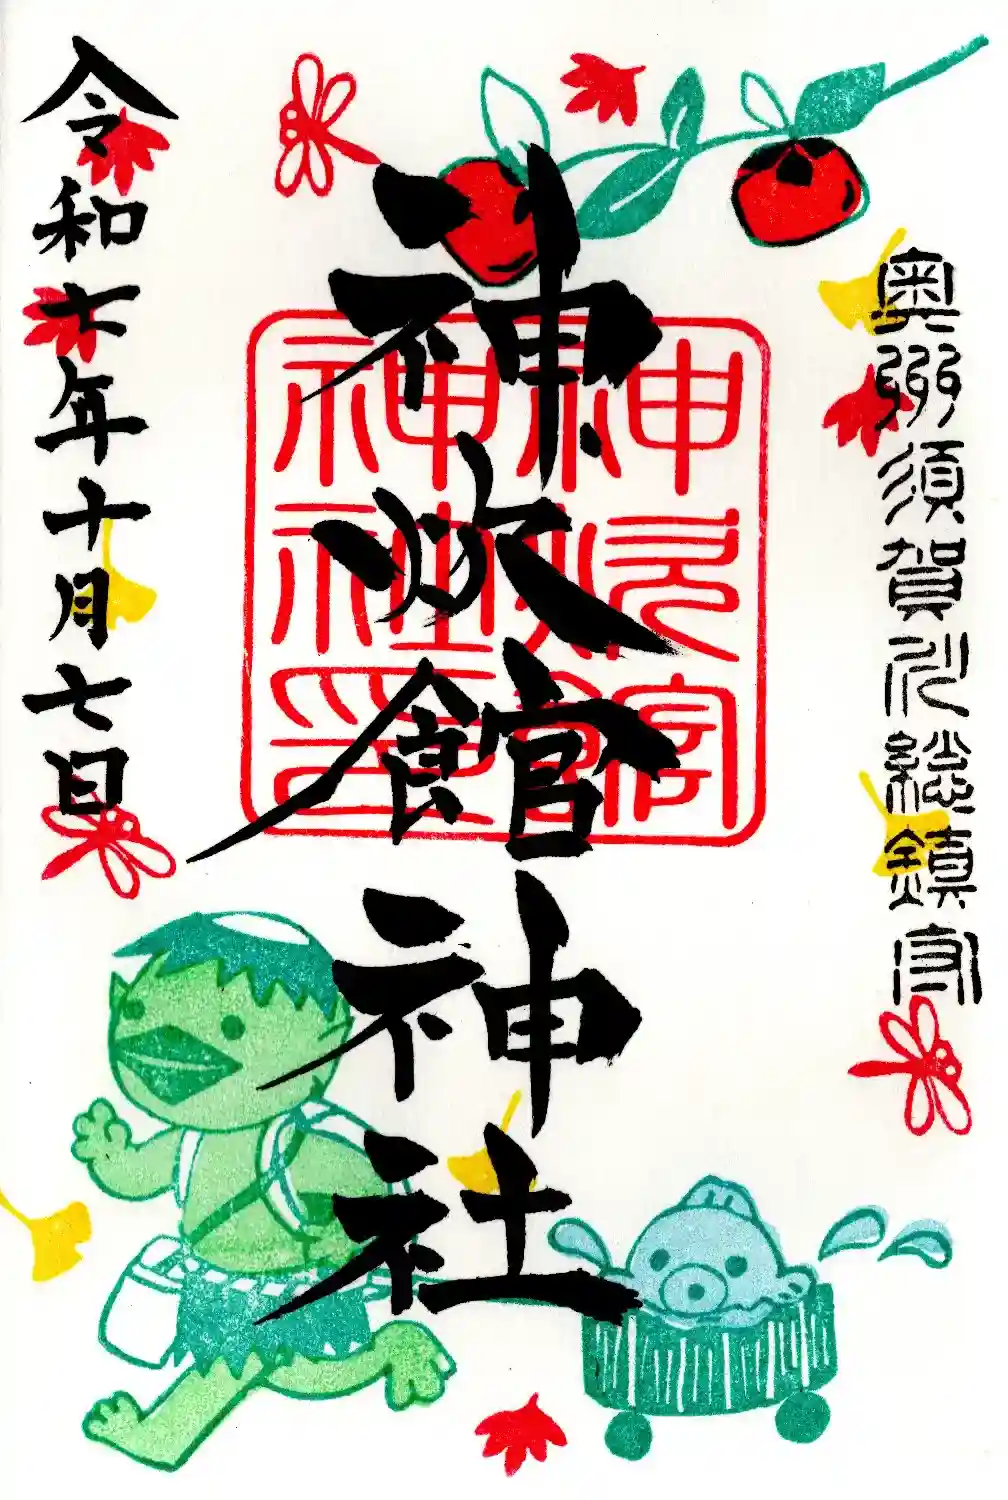 奥州須賀川総鎮守
神炊館神社
神炊館神社印
令和七年十月七日